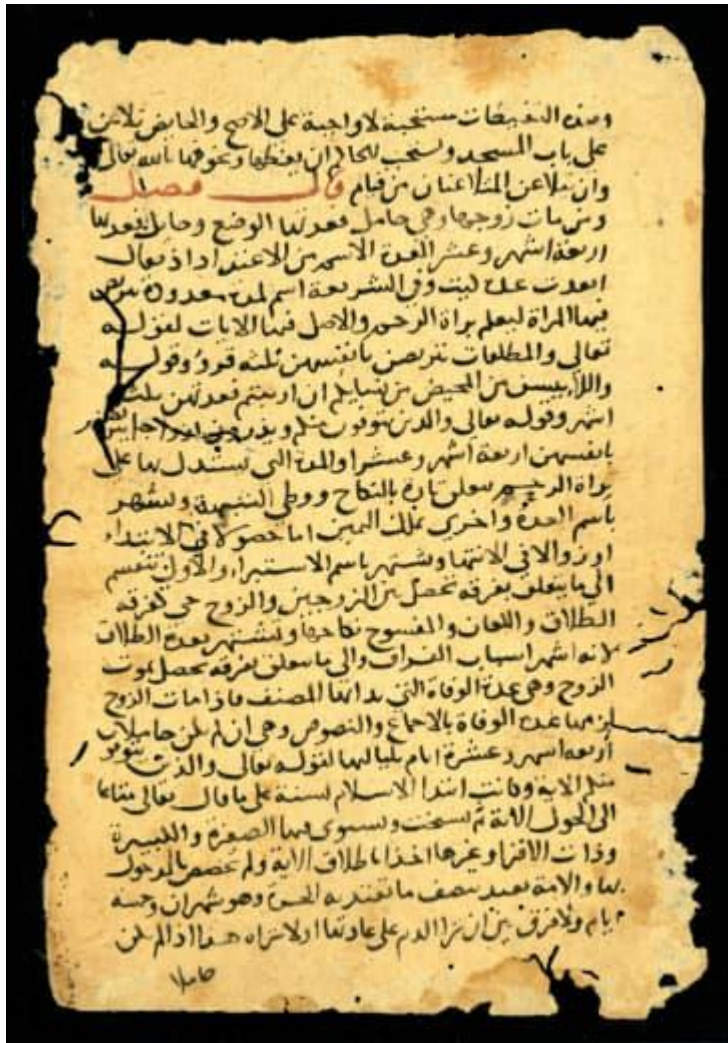 وهذه التغليظات مستحبة لا واجبة على الاصح والحايض تلاعن
على باب المسجد ويستحب للحاكم ان يعظهما ويخوفهما بالله تعالى
وان يتلاعن المتلاعنان من قيام قال فصل
ومن مات زوجها وهي حامل فعدتها الوضع وحايل فعدتها
اربعة اشهر وعشر العدة الاسم من الاعتداد اذ يقال
اعتدت عدة وفي الشريعة اسم لمدة معدودة تتربص
فيها المراة ليعلم براة الرحم والاصل فيها الايات لقوله
تعالى والمطلقات يتربصن بانفسهن ثلثه قروء وقوله
واللاي ييسن من المحيض من نسايكم ان ارتبتم فعدتهن ثلثة
اشهر وقوله تعالى والذين يتوفون منكم ويذرون ازواجا يتربصن
بانفسهن اربعة اشهر وعشرا والمدة التي يستدل بها على
براة الرحم تتعلق تارة بالنكاح ووطي الشبهة وتشتهر
باسم العدة واخرى بملك اليمين اما حصولا في الابتداء
اوزوالا في الانتها وتشتهر باسم الاستبراء والاول تنقسم
الى ما يتعلق بفرقه تحصل بين الزوجين والزوج حي كفرقه
الطلاق واللعان والفسوخ وتشتهر بعدة الطلاق
لانه اشهر اسباب الفراق والى ما يتعلق بفرقه تحصل بموت
الزوج وهي عدة الوفاة التي بدا بها المصنف فاذا مات الزوج
لزمها عدة الوفاة بالاجماع والنصوص وهي ان لم تكن حاملا
أربعه اسهر وعشرة ايام بلياليها لقوله تعالى والذين يتوفون
منكم الاية وكانت ابتدا الاسلام لسنة على ما قال تعالى متاعا
الى الحول الاية ثم نسخت ويستوى فيها الصغيرة والكبيرة
وذات الاقراء وغيرها اخذا باطلاق الاية ولم تختص بالمدخول
بها والامة تعتد بنصف ما تعتد به الحرة وهو شهران وخمسة
ايام ولا فرق بين ان ترا الدم على عادتها اولا تراه هذا اذا لم تكن
حاملا